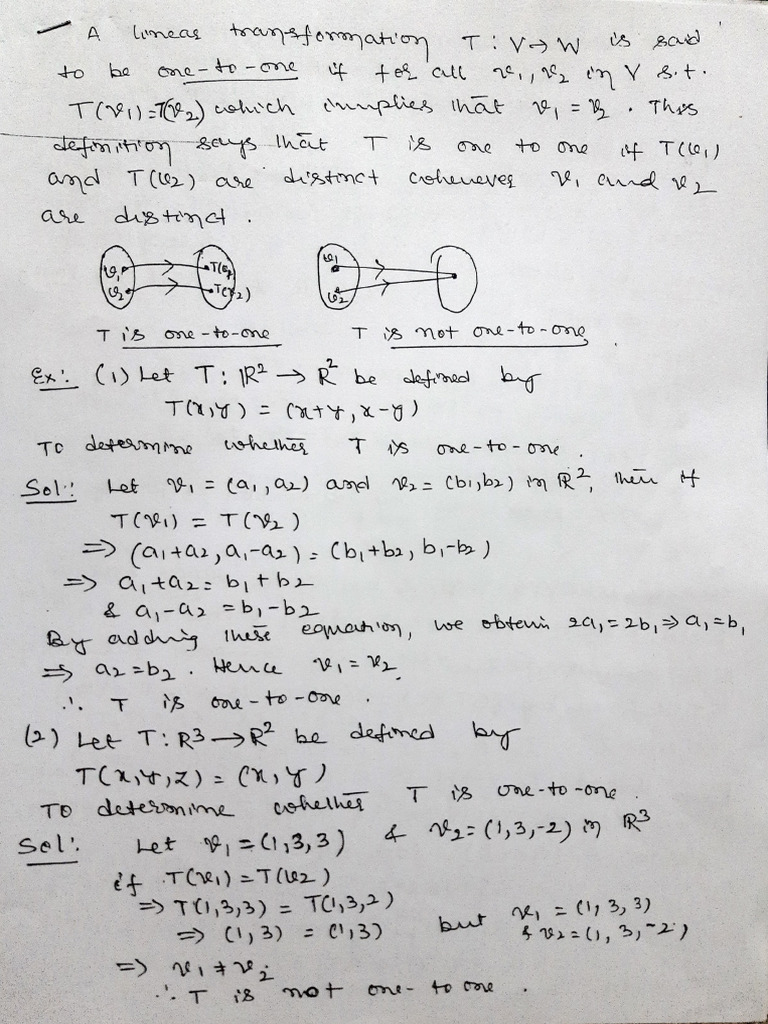 A linear transformation T : V → W is said
to be one-to-one if for all v₁, v₂ in V s.t.
T(v₁) = T(v₂) which implies that v₁ = v₂ . This
definition says that T is one to one if T(v₁)
and T(v₂) are distinct whenever v₁ and v₂
are distinct .
v₁ T(v₁) v₁
v₂ T(v₂) v₂
T is one-to-one T is not one-to-one .
Ex:. (1) Let T : ℝ² → ℝ² be defined by
T(x,y) = (x+y, x-y)
To determine whether T is one-to-one .
Sol:. Let v₁ = (a₁, a₂) and v₂ = (b₁, b₂) in ℝ², then if
T(v₁) = T(v₂)
⇒ (a₁+a₂, a₁-a₂) = (b₁+b₂, b₁-b₂)
⇒ a₁+a₂ = b₁+b₂
& a₁-a₂ = b₁-b₂
By adding these equation, we obtain 2a₁ = 2b₁ ⇒ a₁ = b₁
⇒ a₂ = b₂ . Hence v₁ = v₂.
∴ T is one-to-one .
(2) Let T : R³ → R² be defined by
T(x,y,z) = (x,y)
To determine whether T is one-to-one .
Sol:. Let v₁ = (1,3,3) & v₂ = (1,3,-2) in ℝ³
if T(v₁) = T(v₂)
⇒ T(1,3,3) = T(1,3,2)
⇒ (1,3) = (1,3) but v₁ = (1,3,3)
& v₂ = (1,3,-2)
⇒ v₁ ≠ v₂
∴ T is not one-to one .